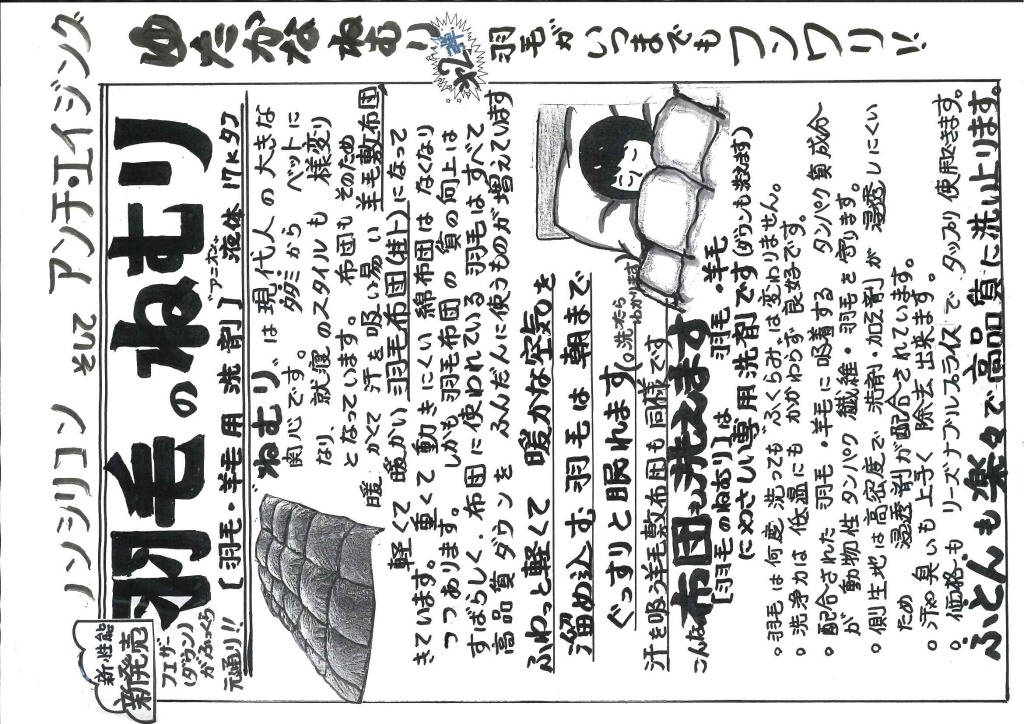 ノンシリコン そして アンチ・エイジング
ゆたかなねむり
羽毛がいつまでもフンワリ!!
新性能
新発売
フェザー
(ダウン)
がふっくら
元通り!!
羽毛のねむり
[羽毛・羊毛用洗剤] "アニオン" 液体 17kタフ
"ねむり"は現代人の大きな
関心です。 タタミから ベットに
なり、就寝のスタイルも 様変り
となっています。 布団も そのため
暖かくて 汗を吸い易い 羊毛敷布団
軽くて 暖かい 羽毛布団(掛ト)になって
きています。 重くて動きにくい綿布団はなくなり
つつあります。 しかも羽毛布団の 質の向上は
すばらしく、布団に使われている羽毛はすべて
高品質ダウンを ふんだんに使うものが増えています
ふわっと軽くて 暖かな空気を
溜め込む羽毛は 朝まで
ぐっすりと眠れます(。洗ったら わかります)
汗を吸う羊毛敷布団も同様です
こんな布団も洗えます
[羽毛のねむり]は 羽毛・羊毛
にやさしい専用洗剤です(ダウンも洗えます)
。羽毛は何度洗っても"ふくらみ"は変わりません。
。洗浄力は低温にもかかわらず 良好です。
。配合された 羽毛・羊毛に吸着する タンパク質成分
が 動物性タンパク 繊維・羽毛を守ります。
。側生地は高密度で 洗剤・加工剤が 浸透しにくい
ため 浸透剤が配合されています。
。汗や臭いも上手く除去出来ます。
。価格も リーズナブルプライスで タップリ使用できます。
ふとんも楽々で高品質に洗い上ります。